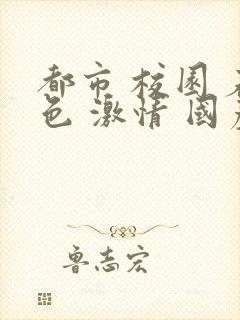 都市 校园 
色 激情 国
鲁志宏